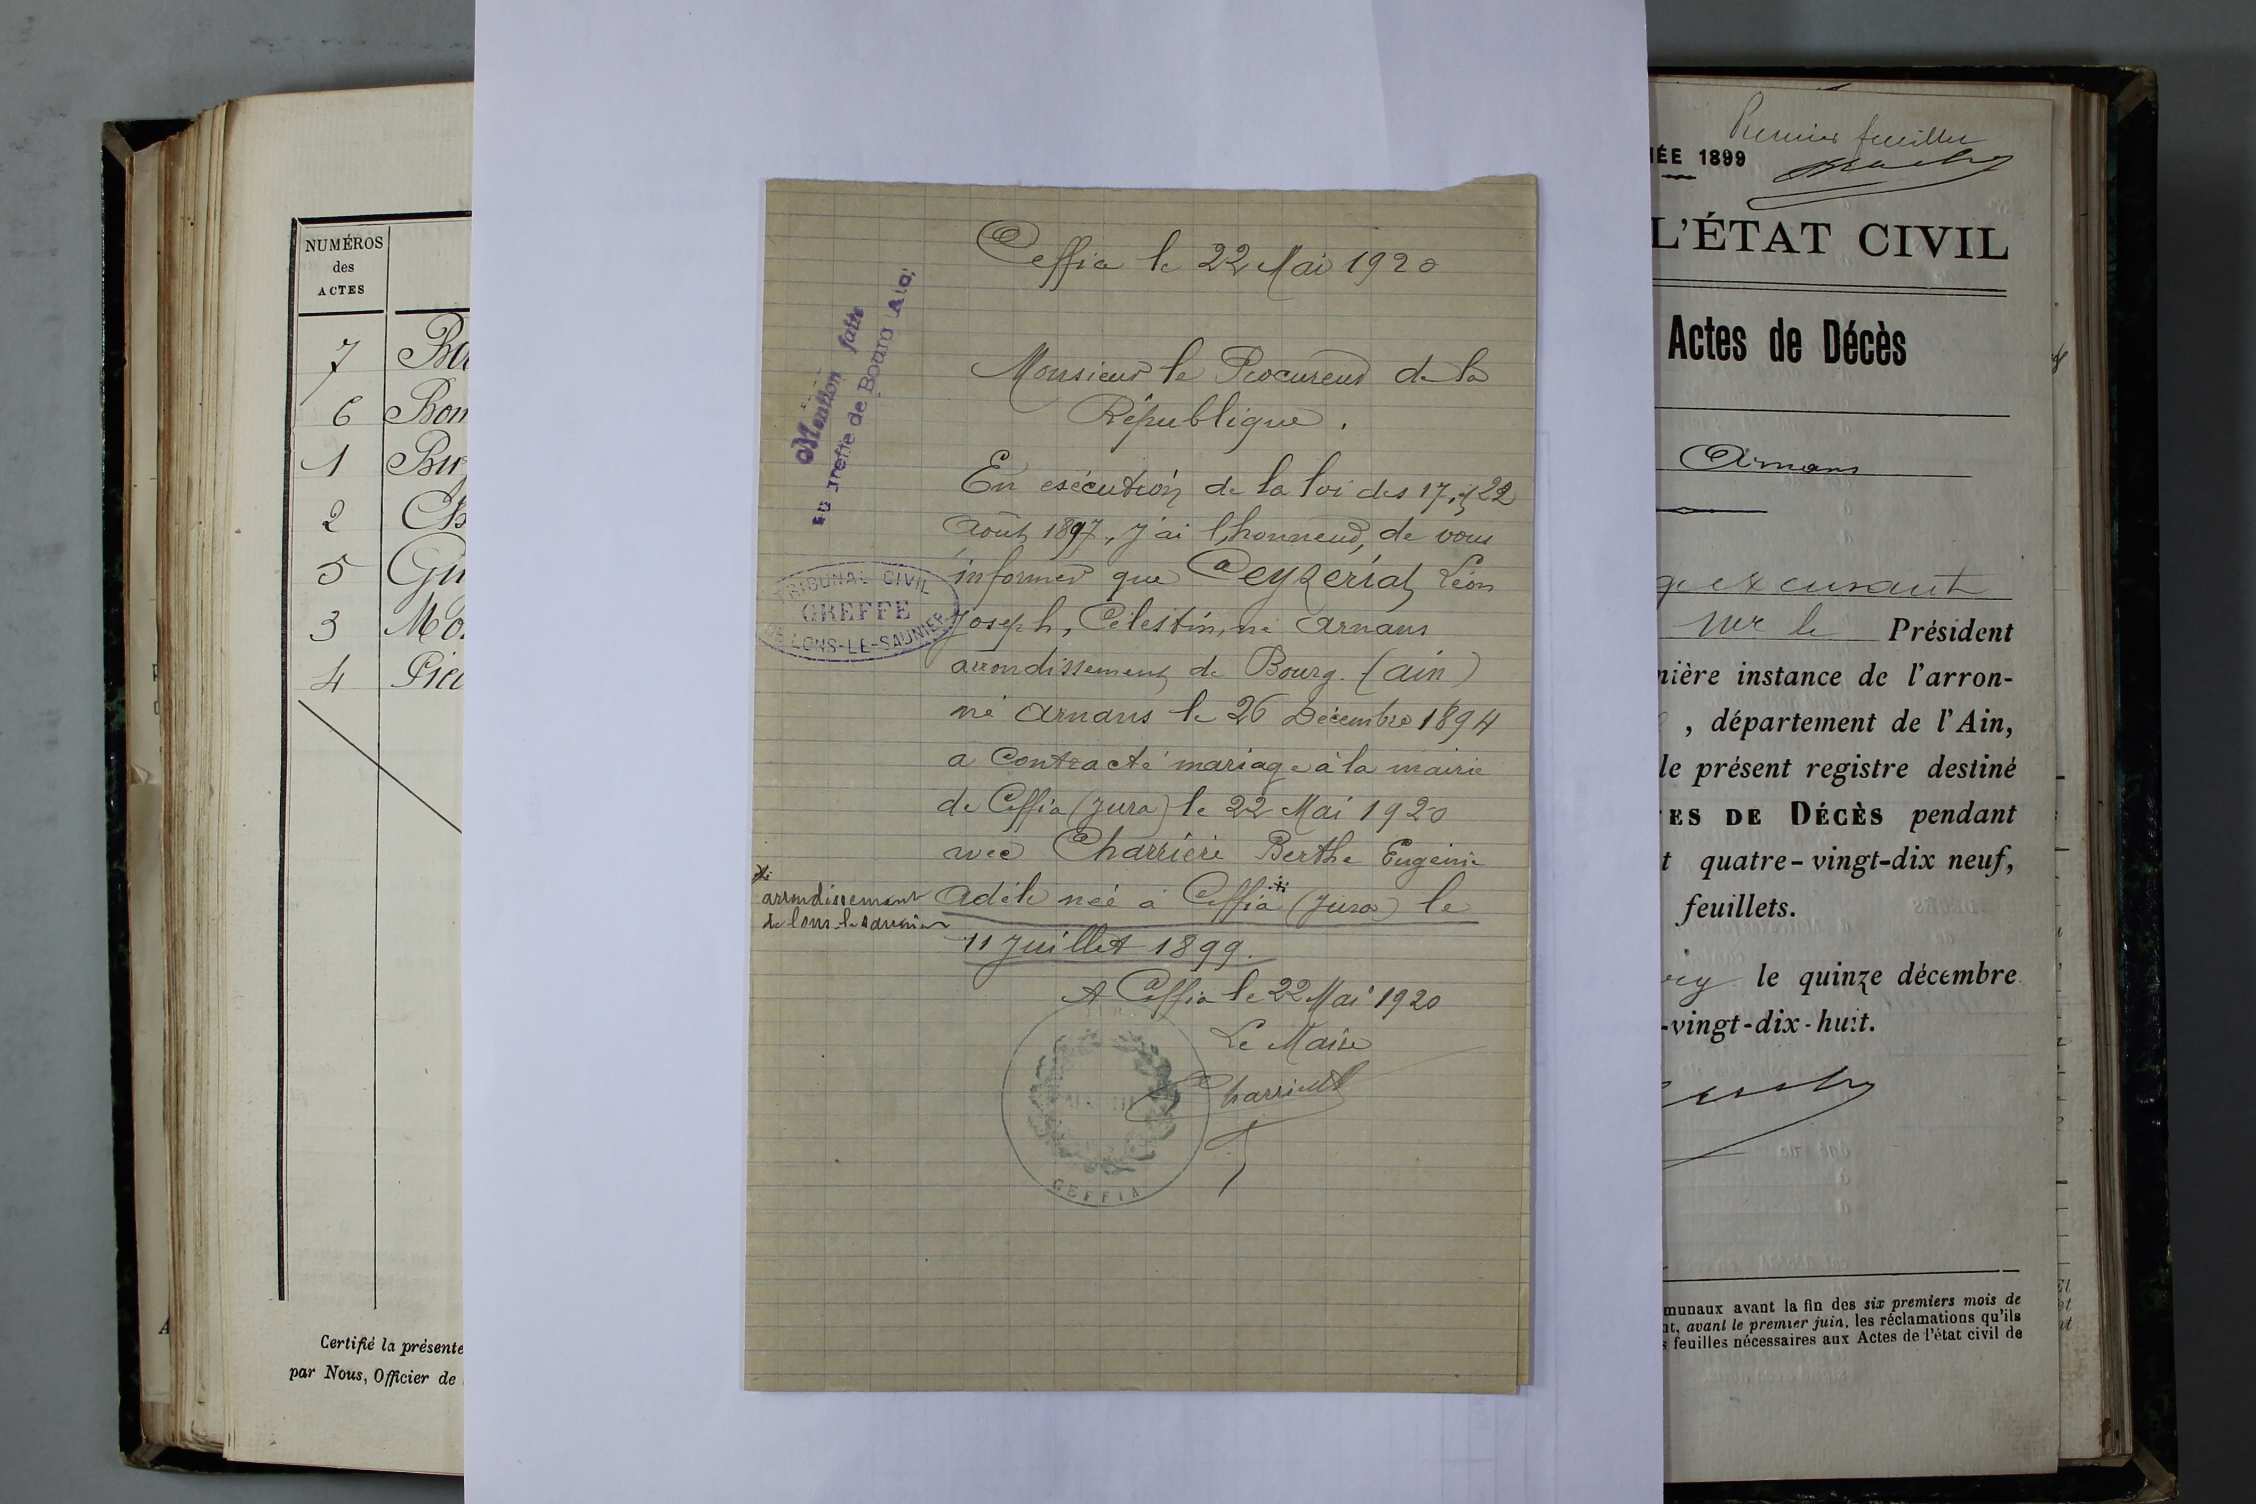 NUMÉROS
des
ACTES
7
6
1
2
5
3
4
Certifié la présente
par Nous, Officier de
Ceffia le 22 Mai 1920
Mention faite
au greffe de Bourg (Ain)
Monsieur le Procureur de la
République.
En exécution de la loi des 17, & 22
Août 1897, j'ai l'honneur, de vous
informer que Ceyzériat Léon
Joseph, Célestin, né Arnans
arrondissement de Bourg. (Ain)
né Arnans le 26 Décembre 1894
a contracté mariage à la mairie
de Ceffia (Jura) le 22 Mai 1920
avec Charrière Berthe Eugénie
Adèle née à Ceffia * (Jura) le
11 Juillet 1899.
* arrondissement
de lons-le-saunier
TRIBUNAL CIVIL
GREFFE
DE LONS-LE-SAUNIER
A Ceffia le 22 Mai 1920
Le Maire
CEFFIA
Premier feuillet
ÉE 1899
L'ÉTAT CIVIL
Actes de Décès
Arnans
Président
nière instance de l'arron-
, département de l'Ain,
le présent registre destiné
ES DE DÉCÈS pendant
t quatre-vingt-dix neuf,
feuillets.
le quinze décembre
-vingt-dix-huit.
munaux avant la fin des six premiers mois de
nt, avant le premier juin, les réclamations qu'ils
s feuilles nécessaires aux Actes de l'état civil de